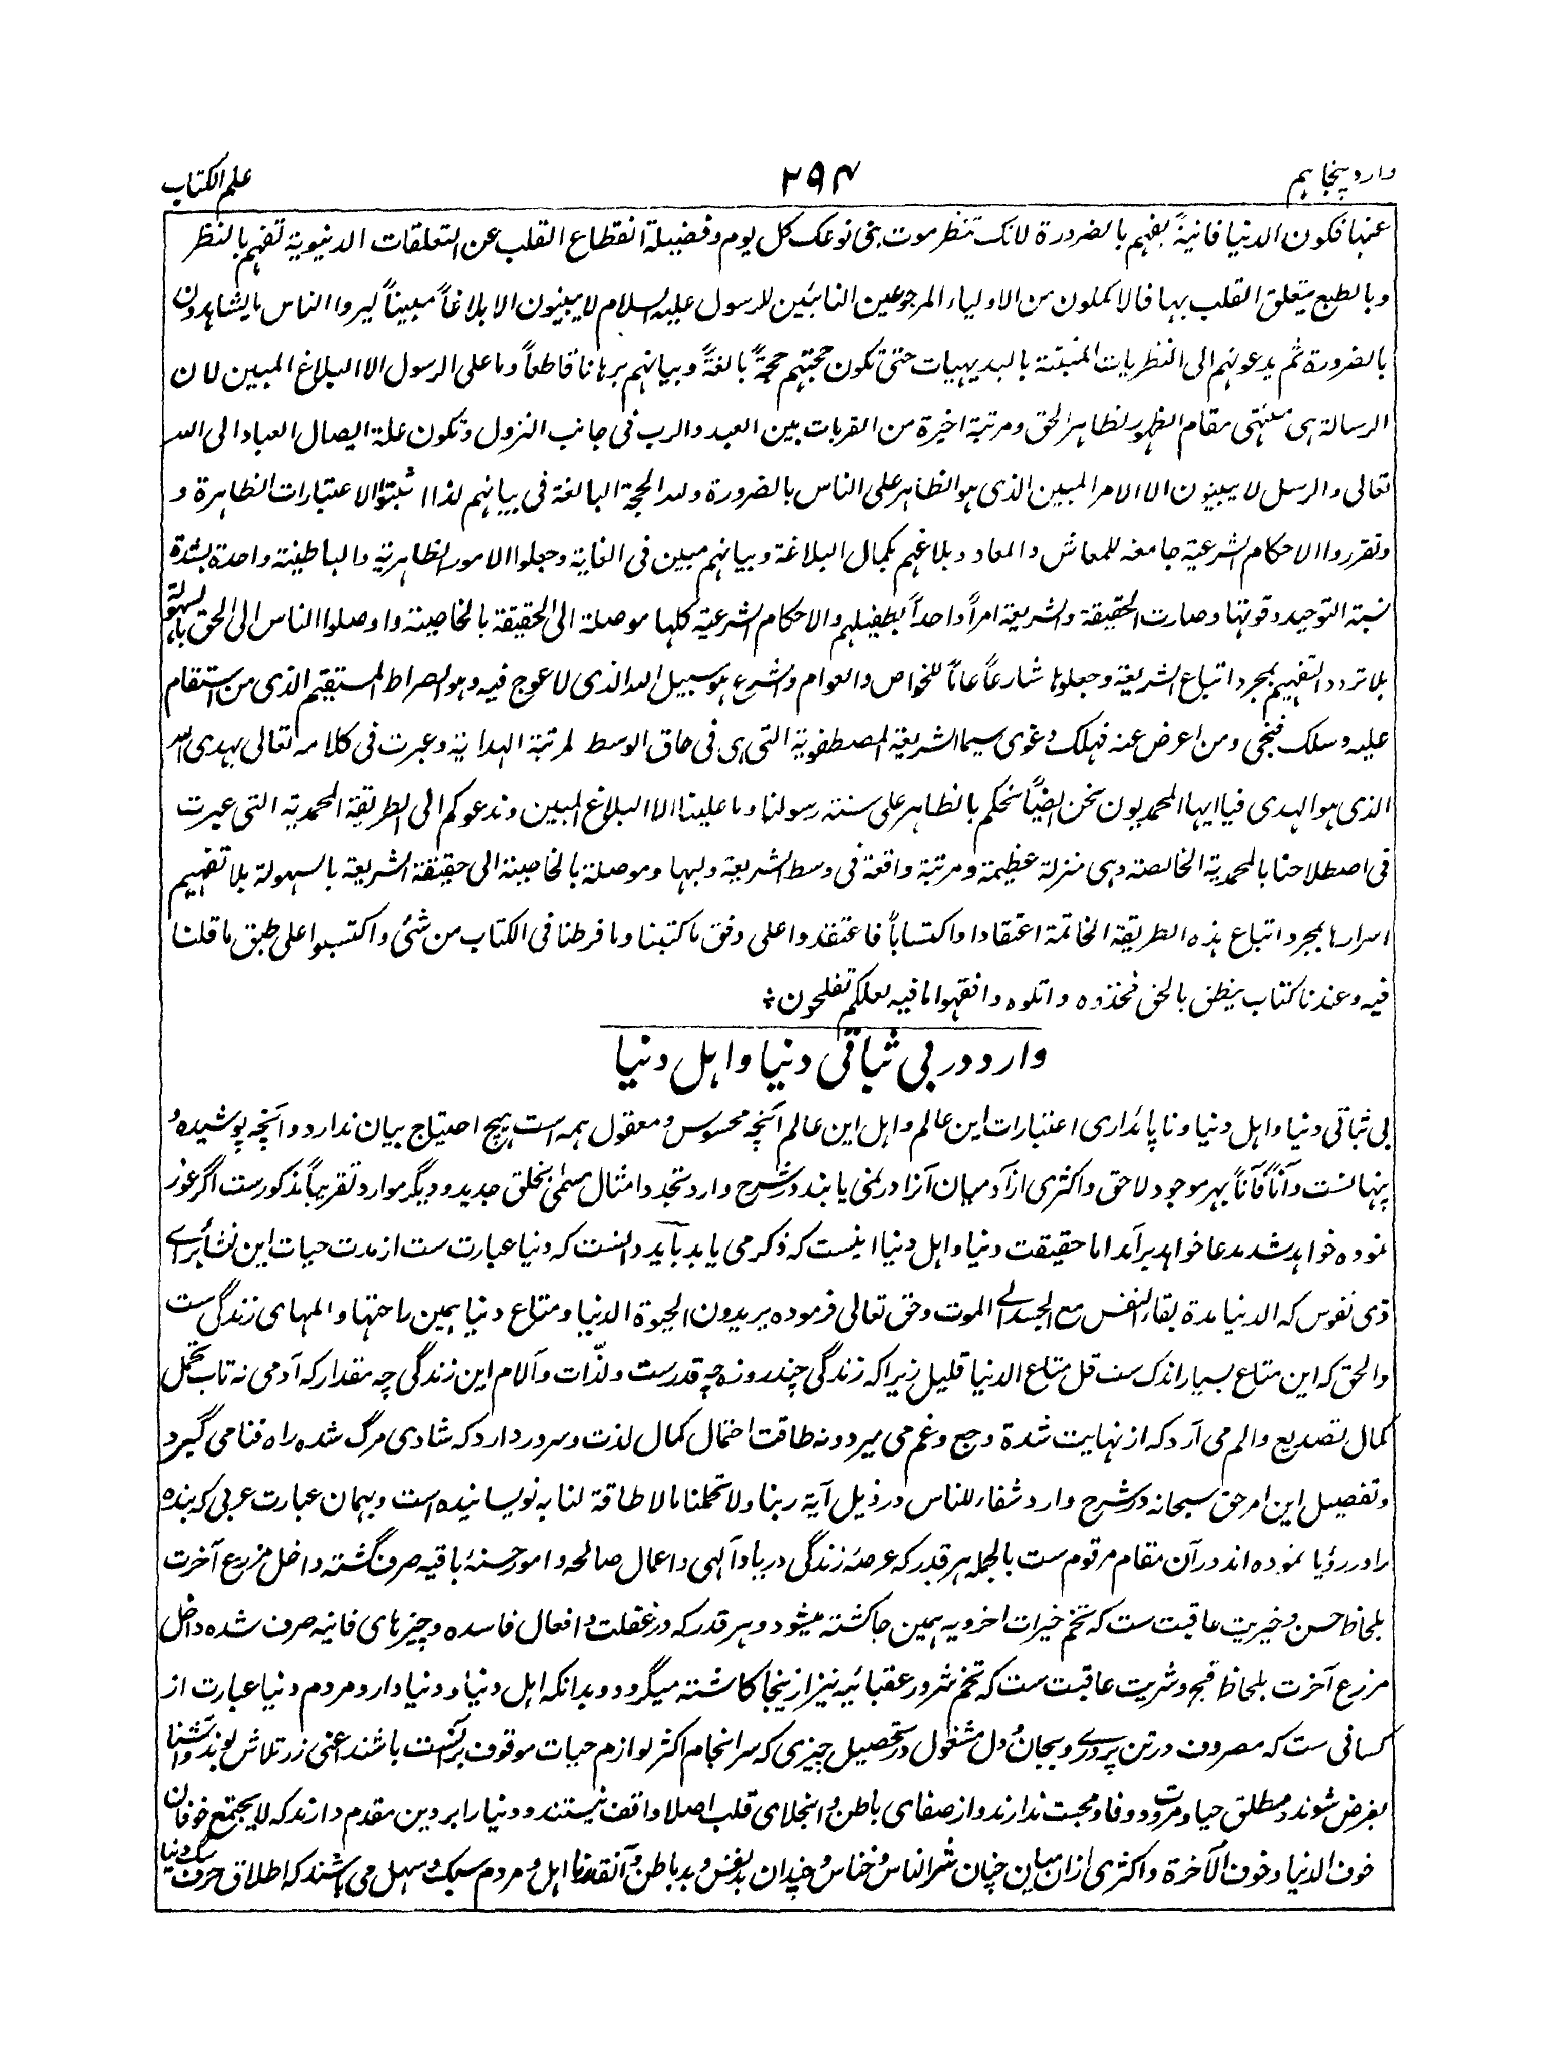 وارد پنجاہم
۲۹۴
علم الکتاب
عنہا فکون الدنیا فانیۃً یفہم بالضرورة لانک تنظر موت بنی نوعک کل یوم وفضیلۃ انقطاع القلب عن التعلقات الدنیویۃ تفہم بالنظر
وبالطبع یتعلق القلب بہا فالاکملون من الاولیاء المرجوعین النائبین للرسول علیہ السلام لا یبینون الا بلاغاً مبیناً لیروا الناس ما یشاہدون
بالضرورة ثم یدعونہم الی النظریات المنبئۃ بالبدیہیات حتی تکون حجتہم حجۃً بالغۃً وبیانہم برہانا قاطعاً وما علی الرسول الا البلاغ المبین لان
الرسالۃ ہی منتہی مقام الظہور لظاہر الحق ومرتبۃ اخیرة من القربات بین العبد والرب فی جانب النزول وتکون علۃ ایصال العباد الی اللہ
تعالی والرسل لا یبینون الا الامر المبین الذی ہو الظاہر علی الناس بالضرورة وللہ الحجۃ البالغۃ فی بیانہم لذا اثبتوا الاعتبارات الظاہرة و
وتقرروا الاحکام الشرعیۃ جامعۃ للمعاش والمعاد وبلاغہم بکمال البلاغۃ وبیانہم مبین فی الغایۃ وجعلوا الامور الظاہریۃ والباطنیۃ واحدة بشدة
نسبۃ التوحید وقوتہا وصارت الحقیقۃ والشریعۃ امراً واحداً بطفیلہم والاحکام الشرعیۃ کلہا موصلۃ الی الحقیقۃ بالخاصیۃ واوصلوا الناس الی الحق بالسہولۃ
بلا تردد التفہیم بمجرد اتباع الشریعۃ وجعلوہا شارعاً عاماً للخواص والعوام والشرع ہو سبیل اللہ الذی لا عوج فیہ وہو الصراط المستقیم الذی من استقام
علیہ وسلک فنجی ومن اعرض عنہ فہلک وغوی سیما الشریعۃ المصطفویۃ التی ہی فی حاق الوسط لمرتبۃ الہدایۃ وعبرت فی کلامہ تعالی بہدی اللہ
الذی ہو الہدی فیا ایہا المحمدیون نحن ایضاً نحکم بالظاہر علی سنۃ رسولنا وما علینا الا البلاغ المبین وندعوکم الی الطریقۃ المحمدیۃ التی عبرت
فی اصطلاحنا بالمحمدیۃ الخالصۃ وہی منزلۃ عظیمۃ ومرتبۃ واقعۃ فی وسط الشریعۃ ولبہا وموصلۃ بالخاصیۃ الی حقیقۃ الشریعۃ بالسہولۃ بلا تفہیم
اسرارہا بمجرد اتباع ہذہ الطریقۃ الخاتمۃ اعتقادا واکتساباً فاعتقدوا علی وفق ما کتبنا وما فرطنا فی الکتاب من شیٔ واکتسبوا علی طبق ما قلنا
فیہ وعندنا کتاب ینطق بالحق فخذوہ واتلوہ وافقہوا ما فیہ لعلکم تفلحون
وارد در بی ثباتی دنیا واہل دنیا
بی ثباتی دنیا واہل دنیا ونا پائداری اعتبارات این عالم واہل این عالم آنچہ محسوس ومعقول ہمہ است ہیچ احتیاج بیان ندارد وآنچہ پوشیدہ و
پنہانست وآناً فآناً بہر موجود لاحق واکثری از آدمیان آنرا در نمی یابند در شرح وارد تجدد امثال مسمی بخلق جدید ودیگر موارد تقریباً مذکورست اگر غور
نمودہ خواہد شد مدعا خواہد برآمد اما حقیقت دنیا واہل دنیا اینست کہ ذکر می یابد باید دانست کہ دنیا عبارت ست از مدت حیات این نشأ براے
ذی نفوس کہ الدنیا مدة بقاء النفس مع الجسد الی الموت وحق تعالی فرمودہ یریدون الحیوة الدنیا ومتاع دنیا ہمین راحتہا والمہای زندگی ست
والحق کہ این متاع بسیار اندک ست قل متاع الدنیا قلیل زیرا کہ زندگی چند روزہ چہ قدرست ولذّات وآلام این زندگی چہ مقدار کہ آدمی نہ تاب تحمل
کمال تصدیع والم می آرد کہ از نہایت شدة وجع وغم می میرد ونہ طاقت احتمال کمال لذت وسرور دارد کہ شادی مرگ شدہ راہ فنا می گیرد
وتفصیل این امر حق سبحانہ در شرح وارد شفاء للناس در ذیل آیۃ ربنا ولا تحملنا ما لا طاقۃ لنا بہ نویسانیدہ است وہمان عبارت عربی کہ بندہ
را در رؤیا نمودہ اند در آن مقام مرقوم ست بالجملہ ہر قدر کہ عرصۂ زندگی در یاد آلہی واعمال صالحہ وامور حسنۂ باقیہ صرف گشتہ داخل مزرع آخرت
بلحاظ حسن وخیریت عاقبت ست کہ تخم خیرات اخرویہ ہمین جا کشتہ میشود وہر قدر کہ در غفلت و افعال فاسدہ وچیزہای فانیہ صرف شدہ داخل
مزرع آخرت بلحاظ قبح وشریت عاقبت ست کہ تخم شرور عقبائیہ نیز ازینجا کاشتہ میگردد وبدانکہ اہل دنیا و دنیا دار ومردم دنیا عبارت از
کسانی ست کہ مصروف در تن پروری وبجان ودل مشغول در تحصیل چیزی کہ سرانجام اکثر لوازم حیات موقوف برآنست باشند اعنی زر تلاش بوند وآشنا
بغرض شوند ومطلق حیا ومروت ووفا ومحبت ندارند واز صفای باطن و انجلای قلب اصلا واقف نیستند ودنیا را بر دین مقدم دارند کہ لا یجتمع خوفان
خوف الدنیا وخوف الآخرة واکثری ازان میان چنان شر الناس وخناس و چندان بد نفس وبد باطن و آنقدر نا اہل ومردم سبک وسہل می باشند کہ اطلاق حرف سگ دنیا